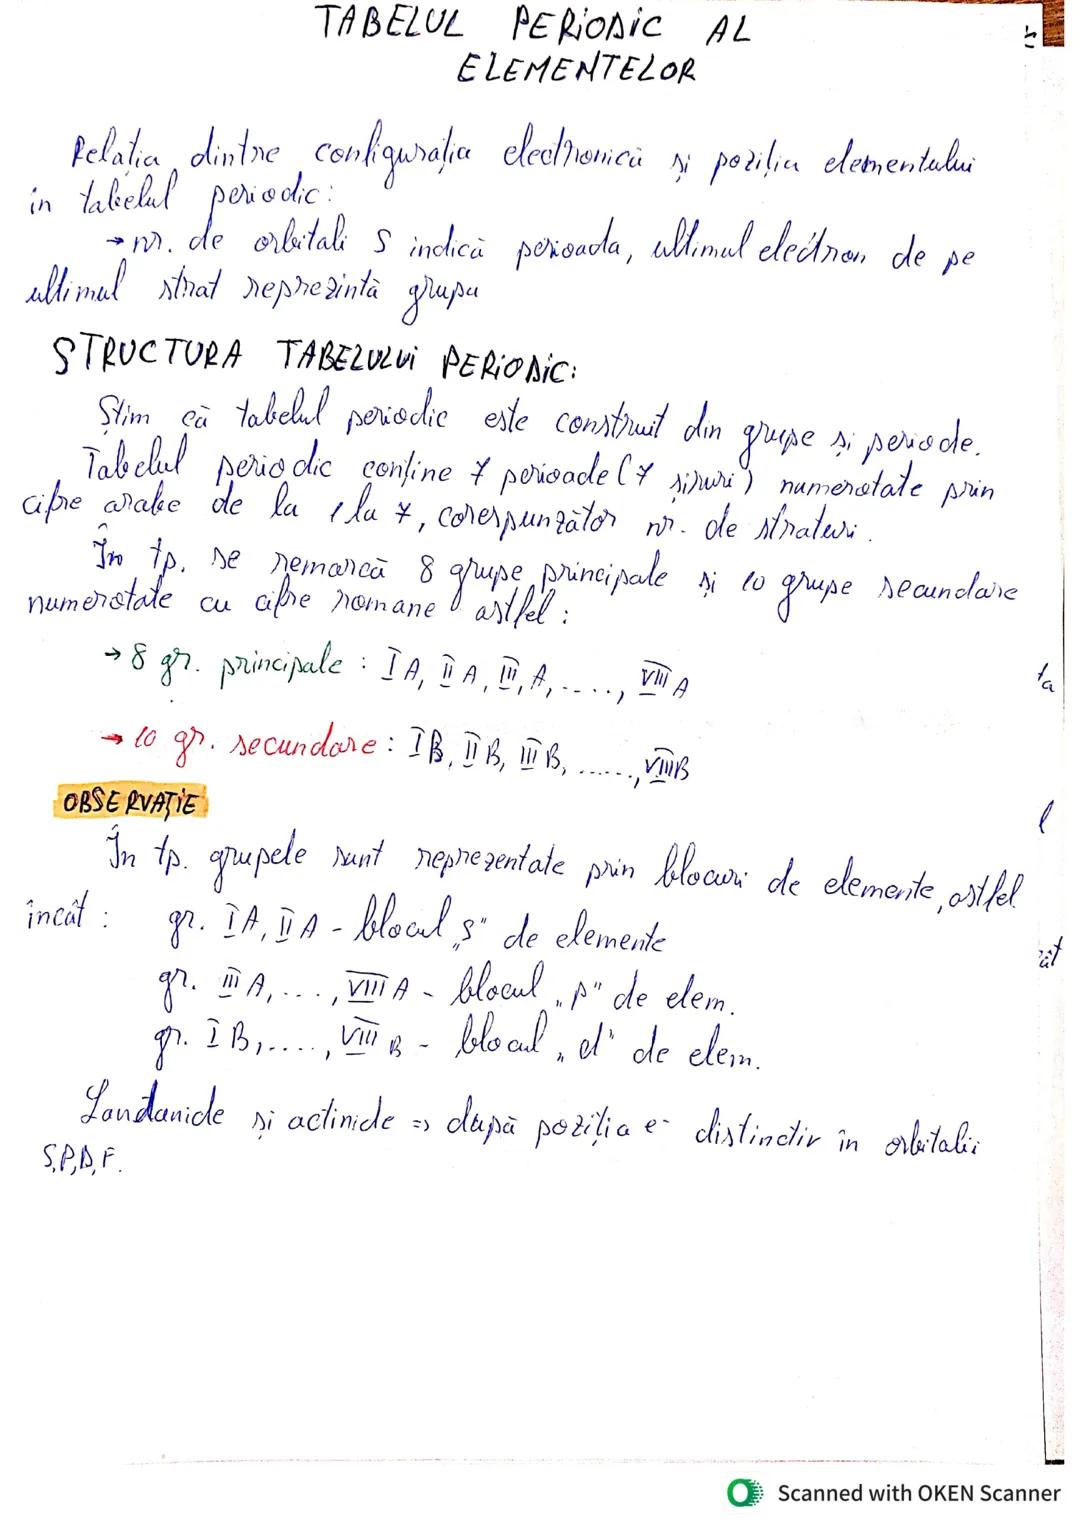 TABELUL PERIODIC AL
ELEMENTELOR
Relația dintre configurația electronică și poziția elementului
în tabelul periodic:
→ nr. de orbitali S indică perioada, ultimul electron de pe
ultimul strat reprezintă grupa
STRUCTURA TABELULUI PERIODIC:
Știm că tabelul periodic este construit din grupe și periode.
Tabelul periodic conține 7 perioade (7 șiruri) numerotate prin
cifre arabe de la 1 la 7, corespunzător nr. de straturi.
În tp. se remarcă 8 grupe principale și 10 grupe secundare
numerotate cu cifre romane astfel:
→ 8 gr. principale : I A, II A, III, A, ....., VIII A
→ 10 gr. secundare : I B, II B, III B, ......, VIII B
OBSERVAȚIE
În tp. grupele sunt reprezentate prin blocuri de elemente, astfel
încât : gr. I A, II A - blocul „s" de elemente
gr. III A, ..., VIII A - blocul „p" de elem.
gr. I B, ...., VIII B - blocul „d" de elem.
Lantanide și actinide => după poziția e- distinctiv în orbitalii
S, P, D, F.
ta
l
ât
Scanned with OKEN Scanner